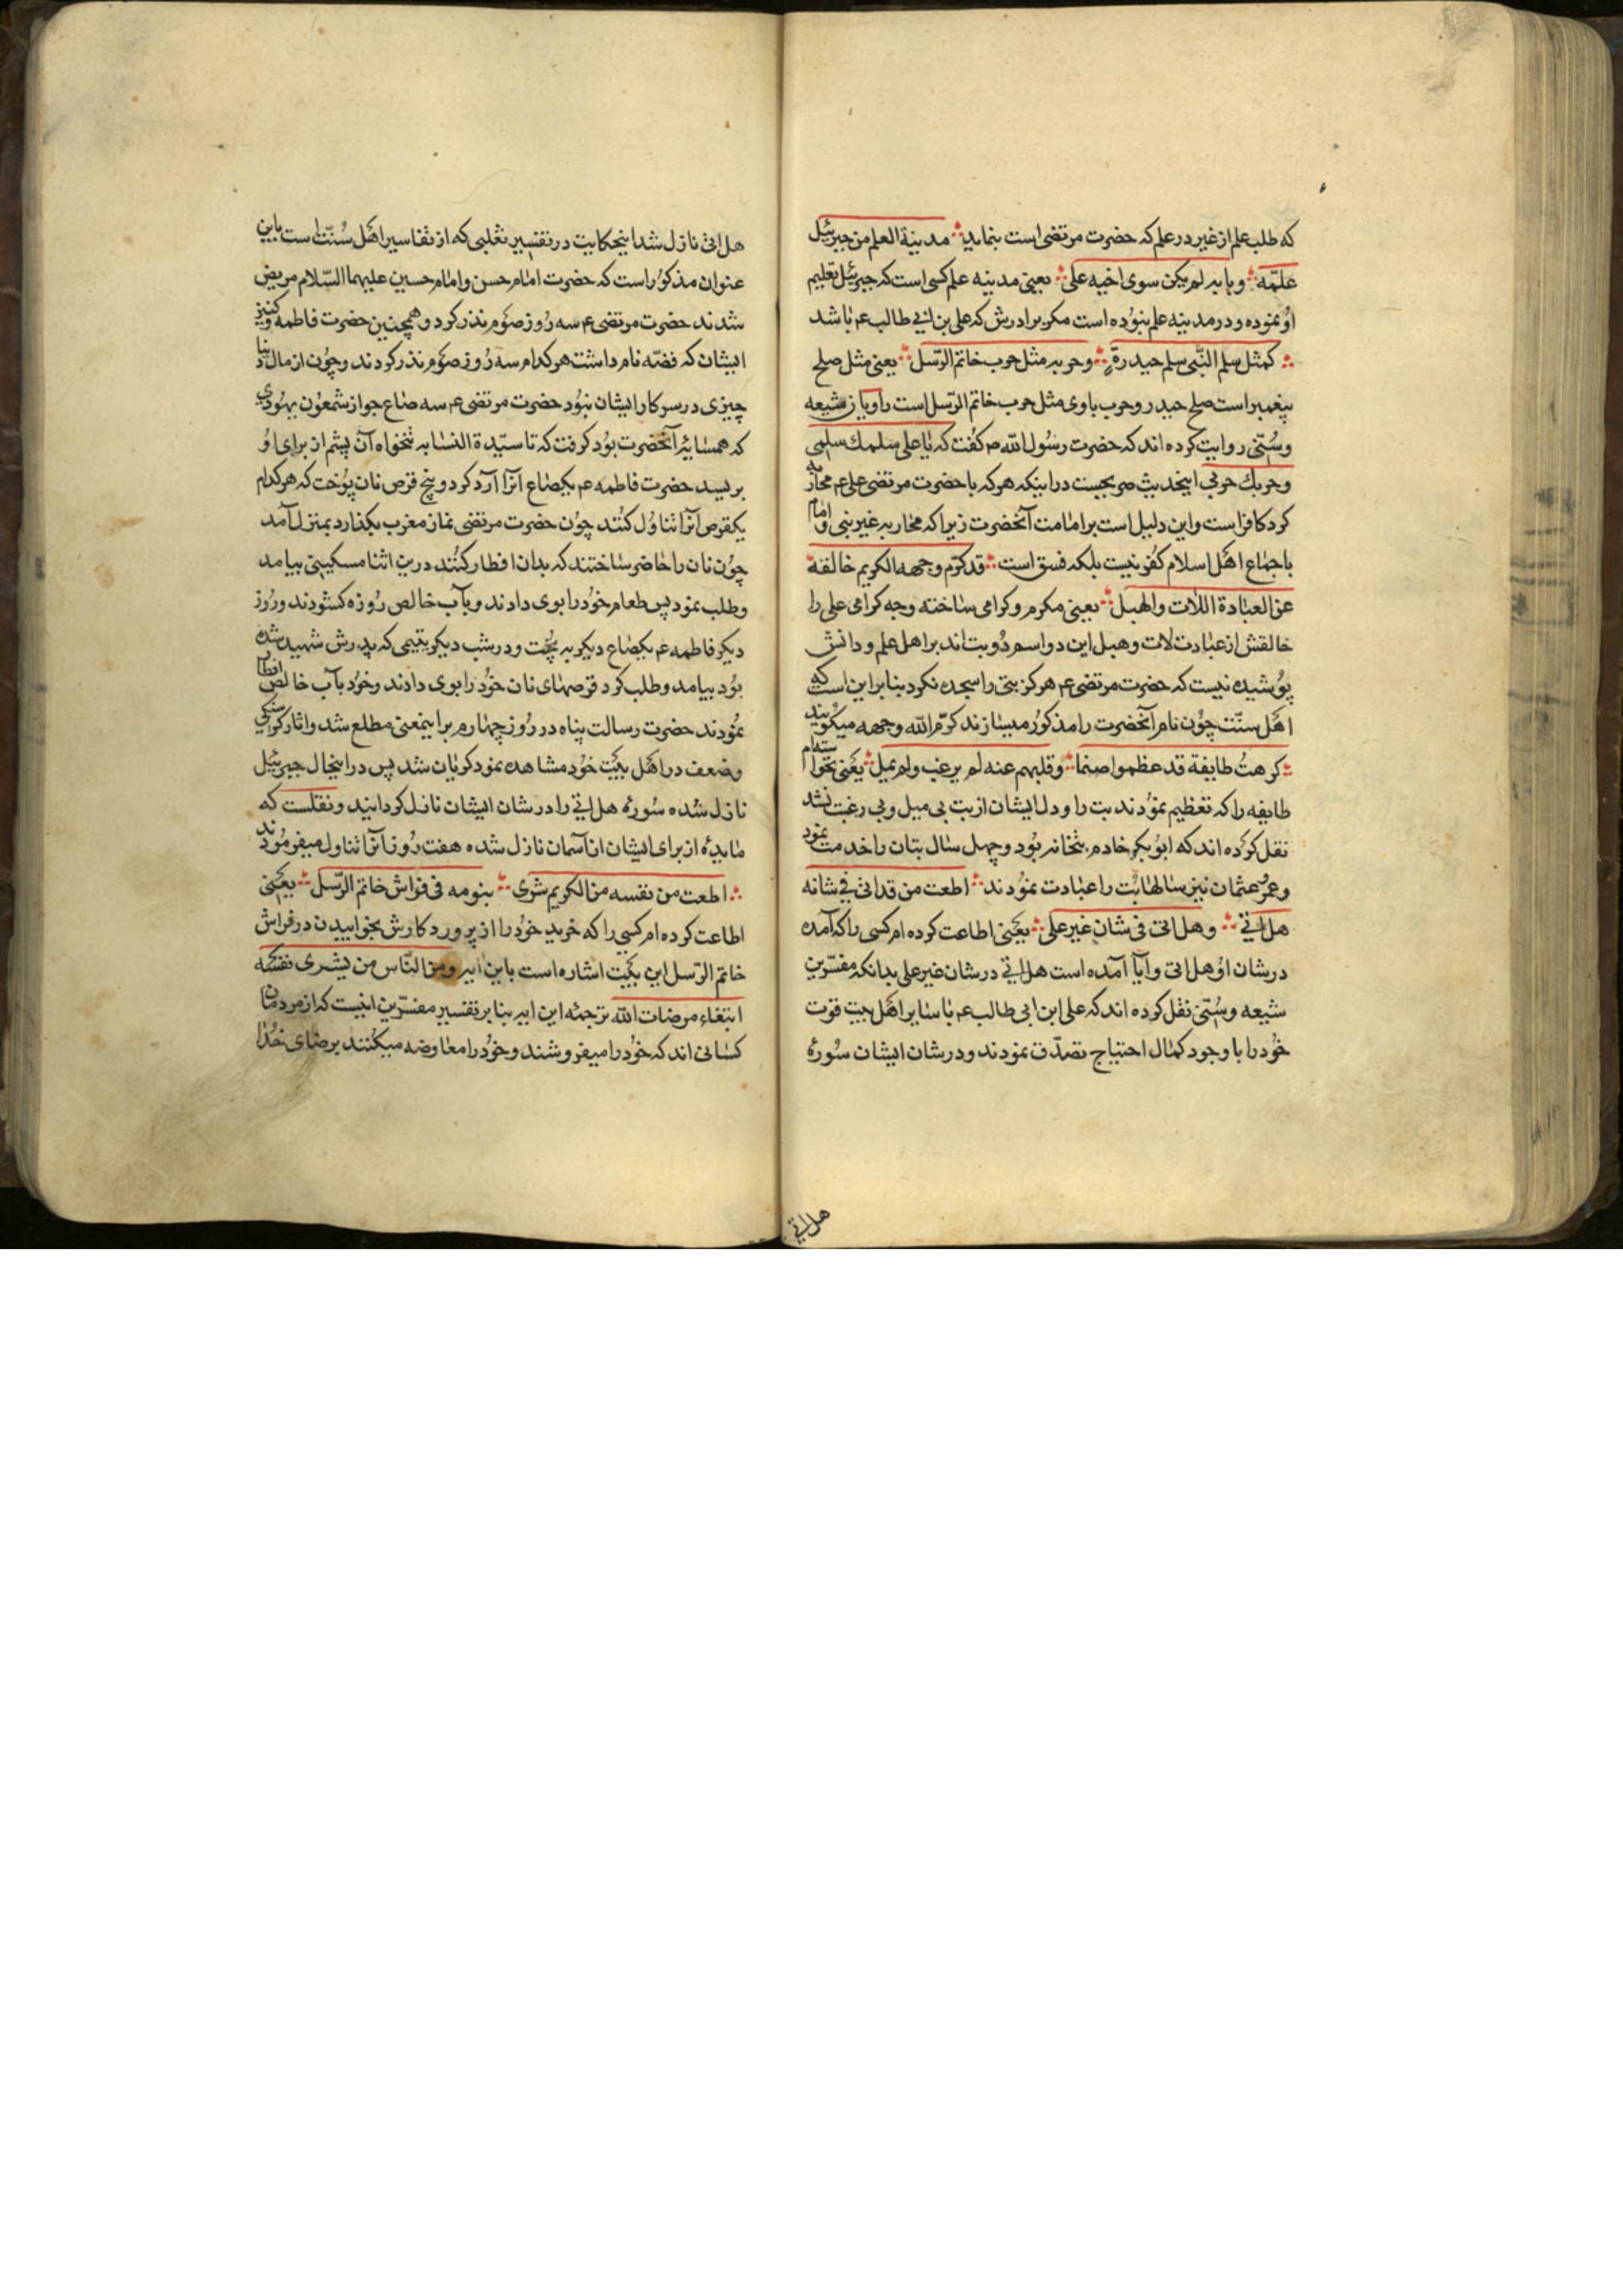 که طلب علم از غیر در علم که حضرت مرتضی است بنماید مدینة العلم من جبرئیل
علّمه وبابه لم یکن سوی اخیه علی یعنی مدینه علم کسی است که جبرئیل تعلیم
او نموده و در مدینه علم نبوده است مکر برادرش که علی بن ابی طالب عم باشد
کمثل سلم النّبی سلم حیدرة وحربه مثل حرب خاتم الرّسل یعنی مثل صلح
پیغمبر است صلح حیدر وحرب باوی مثل حرب خاتم الرّسل است راویان شیعه
وسُنّی روایت کرده اند که حضرت رسُول الله ص کفت که یا علی سلمك سلمی
وحربك حربی اینحدیث صریحست در اینکه هرکه با حضرت مرتضی علی عم محاربه
کرد کافر است واین دلیل است بر امامت آنحضرت زیرا که محاربه غیر نبی وامام
باجماع اهل اسلام کفر نیست بلکه فسق است قد کرّم وجهه الکریم خالقه
عن العبادة اللات والهبل یعنی مکرم وکرامی ساخته وجه کرامی علی را
خالقش از عبادت لات وهبل این دو اسم دُو بت اند بر اهل علم و دانش
پوُشیده نیست که حضرت مرتضی عم هرکز بتی را سجده نکرد بنابر این است که
اهل سنّت چوُن نام آنحضرت را مذکوُر میسازند کرّم الله وجهه میکُویند
کرهتُ طایفة قد عظموا صنما وقلبهم عنه لم یرغب ولم یمل یعنی نخواستهام
طایفه را که تعظیم نموُدند بت را و دل ایشان از بت بی میل وبی رغبت نشد
نقل کرُده اند که ابوُبکر خادم بتخانه بوُد وچهل سال بتان را خدمت نمود
وعمر وعثمان نیز سالها بُت را عبادت نموُدند اطعت من قد اتی فی شانه
هل اتی وهل اتی فی شان غیر علی یعنی اطاعت کرده ام کسی را که آمده
در شان اوُ هل اتی وآیا آمده است هل اتی در شان غیر علی بدانکه مفسّرین
شیعه وسُنّی نقل کرده اند که علی ابن ابی طالب عم با سایر اهل بیت قوت
خوُد را با وجود کمال احتیاج تصدّق نمودند و در شان ایشان سوُرهٔ
هل اتی
هل اتی نازل شد اینحکایت در تفسیر ثعلبی که از تفاسیر اهل سُنّت است باین
عنوان مذکوُر است که حضرت امام حسن وامام حسین علیهما السّلام مریض
شدند حضرت مرتضی عم سه رُوز صوُم نذر کرد وهمچنین حضرت فاطمه وکنیز
ایشان که فضّه نام داشت هرکدام سه رُوز صوُم نذر کردند وچوُن از مال دنیا
چیزی در سرکار ایشان نبوُد حضرت مرتضی عم سه صاع جو از شمعوُن یهوُدی
که همسایهٔ آنحضرت بوُد کرفت که تا سیّدة النسا به تنخواه آن پشم از برای اوُ
بریسد حضرت فاطمه عم یکصاع آنرا آرد کرد و پنج قرص نان پوُخت که هرکدام
یکقرص آنرا تناوُل کنُند چوُن حضرت مرتضی نماز مغرب بکذارد بمنزل آمد
چوُن نان را حاضر ساختند که بدان افطار کنُند در ین اثنا مسکینی بیامد
وطلب نمود پس طعام خوُد را بوی دادند وبآب خالص رُوزه کشوُدند ورُوز
دیکر فاطمه عم یکصاع دیکر به پُخت ودر شب دیکر یتیمی که پدرش شهید شده
بوُد بیامد وطلب کرد قرصهای نان خوُد را بوی دادند وخوُد بآب خالص افطار
نموُدند حضرت رسالت پناه در رُوز چهارم بر اینمعنی مطلع شد واثار کرُسنکی
وضعف در اهل بیُت خوُد مشاهده نمود کریان شد پس در اینحال جبرئیل
نازل شده سوُرهٔ هل اتی را در شان ایشان نازل کردانید ونقلست که
مایدهٔ از برای ایشان از آسمان نازل شده هفت رُوز آنرا تناول میفرموُدند
اطعت من نفسه من الکریم شری بنومه فی فراش خاتم الرّسل یعنی
اطاعت کرده ام کسی را که خرید خوُد را از پروردکارش بخوابیدن در فراش
خاتم الرّسل این بیُت اشاره است باین ایه ومن النّاس من یشری نفسه
ابتغاء مرضات الله ترجمهٔ این ایه بنابر تفسیر مفسّرین اینست که از مردمان
کسانی اند که خوُد را میفروشند وخوُد را معاوضه میکنُند برضای خدُا